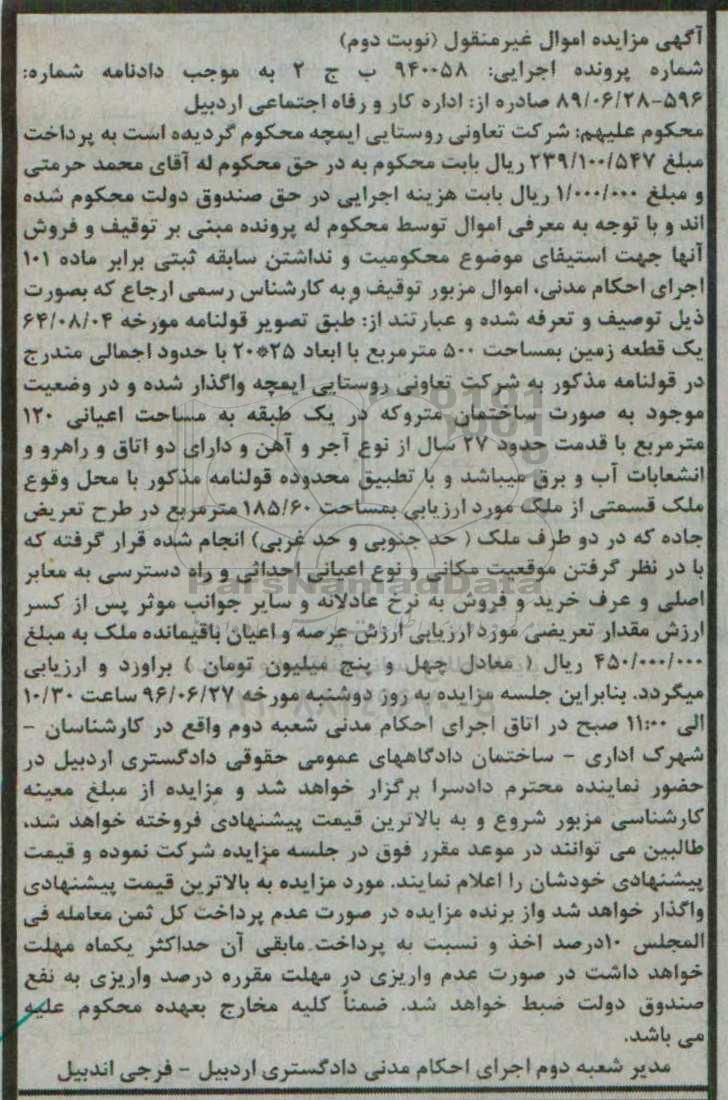 آگهی مزایده اموال غیرمنقول (نوبت دوم)
شماره پرونده اجرایی: ۹۴۰۰۵۸ ب ج ۲ به موجب دادنامه شماره:
۵۹۶-۸۹/۰۶/۲۸ صادره از: اداره کار و رفاه اجتماعی اردبیل
محکوم علیهم: شرکت تعاونی روستایی ایمچه محکوم گردیده است به پرداخت
مبلغ ۲۳۹/۱۰۰/۵۴۷ ریال بابت محکوم به در حق محکوم له آقای محمد حرمتی
و مبلغ ۱/۰۰۰/۰۰۰ ریال بابت هزینه اجرایی در حق صندوق دولت محکوم شده
اند و با توجه به معرفی اموال توسط محکوم له پرونده مبنی بر توقیف و فروش
آنها جهت استیفای موضوع محکومیت و نداشتن سابقه ثبتی برابر ماده ۱۰۱
اجرای احکام مدنی، اموال مزبور توقیف و به کارشناس رسمی ارجاع که بصورت
ذیل توصیف و تعرفه شده و عبارتند از: طبق تصویر قولنامه مورخه ۶۴/۰۸/۰۴
یک قطعه زمین بمساحت ۵۰۰ مترمربع با ابعاد ۲۵*۲۰ با حدود اجمالی مندرج
در قولنامه مذکور به شرکت تعاونی روستایی ایمچه واگذار شده و در وضعیت
موجود به صورت ساختمان متروکه در یک طبقه به مساحت اعیانی ۱۲۰
مترمربع با قدمت حدود ۲۷ سال از نوع آجر و آهن و دارای دو اتاق و راهرو و
انشعابات آب و برق میباشد و با تطبیق محدوده قولنامه مذکور با محل وقوع
ملک قسمتی از ملک مورد ارزیابی بمساحت ۱۸۵/۶۰ مترمربع در طرح تعریض
جاده که در دو طرف ملک ( حد جنوبی و حد غربی) انجام شده قرار گرفته که
با در نظر گرفتن موقعیت مکانی و نوع اعیانی احداثی و راه دسترسی به معابر
اصلی و عرف خرید و فروش به نرخ عادلانه و سایر جوانب موثر پس از کسر
ارزش مقدار تعریضی مورد ارزیابی ارزش عرصه و اعیان باقیمانده ملک به مبلغ
۴۵۰/۰۰۰/۰۰۰ ریال ( معادل چهل و پنج میلیون تومان ) براورد و ارزیابی
میگردد. بنابراین جلسه مزایده به روز دوشنبه مورخه ۹۶/۰۶/۲۷ ساعت ۱۰/۳۰
الی ۱۱:۰۰ صبح در اتاق اجرای احکام مدنی شعبه دوم واقع در کارشناسان -
شهرک اداری - ساختمان دادگاههای عمومی حقوقی دادگستری اردبیل در
حضور نماینده محترم دادسرا برگزار خواهد شد و مزایده از مبلغ معینه
کارشناسی مزبور شروع و به بالاترین قیمت پیشنهادی فروخته خواهد شد،
طالبین می توانند در موعد مقرر فوق در جلسه مزایده شرکت نموده و قیمت
پیشنهادی خودشان را اعلام نمایند. مورد مزایده به بالاترین قیمت پیشنهادی
واگذار خواهد شد واز برنده مزایده در صورت عدم پرداخت کل ثمن معامله فی
المجلس ۱۰درصد اخذ و نسبت به پرداخت مابقی آن حداکثر یکماه مهلت
خواهد داشت در صورت عدم واریزی در مهلت مقرره درصد واریزی به نفع
صندوق دولت ضبط خواهد شد. ضمناً کلیه مخارج بعهده محکوم علیه
می باشد.
مدیر شعبه دوم اجرای احکام مدنی دادگستری اردبیل - فرجی اندبیل
ParsNamadData